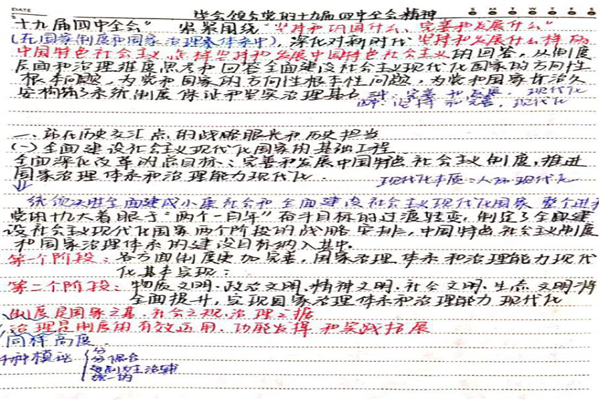 DATE
学会领会党的十九届四中全会精神
十九届四中全会"紧紧围绕"坚持和巩固什么、完善和发展什么"
(在国家制度和国家治理体系中),深化对新时代坚持和发展什么样的
中国特色社会主义,怎样坚持和发展中国特色社会主义的回答,从制度
层面和治理难度点来和回答全面建设社会主义现代化国家的方向性
根本问题,为党和国家的方向性根本性问题,为党和国家长治久
安构筑了系统制度保证和坚实治理基石 完善和发展,现代化
坚持和完善,现代化
一、站在历史交汇点的战略眼光和历史担当
(一)全面建设社会主义现代化国家的基础工程
全面深化改革的总目标:完善和发展中国特色社会主义制度,推进
国家治理体系和治理能力现代化. 现代化本质:人的现代化
统领决胜全面建成小康社会和全面建设社会主义现代化国家 整个进
党的十九大着眼于"两个一百年"奋斗目标的过渡转变,制定了全面建
设社会主义现代化国家两个阶段的战略安排,中国特色社会主义制度
和国家治理体系的建设目标纳入其中.
第一个阶段:各方面制度更加完善,国家治理体系和治理能力现代
化基本实现;
第二个阶段:物质文明.政治文明.精神文明.社会文明.生态文明将
全面提升,实现国家治理体系和治理能力现代化
制度是国家之基.社会之规.治理之据
治理是制度的有效运用.功能发挥和实践拓展
同样高度